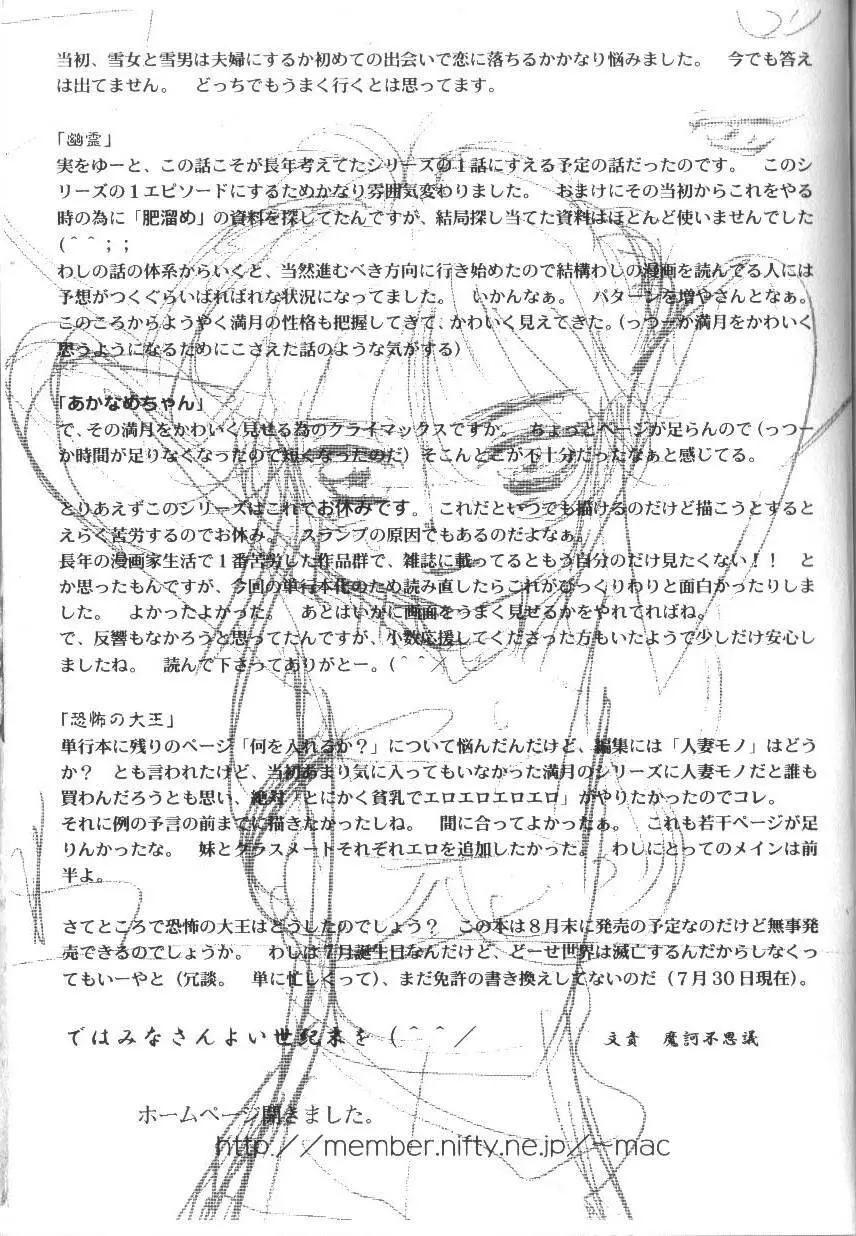 当初、雪女と雪男は夫婦にするか初めての出会いで恋に落ちるかかなり悩みました。　今でも答え
は出てません。　どっちでもうまく行くとは思ってます。
「幽霊」
実をゆーと、この話こそが長年考えてたシリーズの１話にすえる予定の話だったのです。　このシ
リーズの１エピソードにするためかなり雰囲気変わりました。　おまけにその当初からこれをやる
時の為に「肥溜め」の資料を探してたんですが、結局探し当てた資料はほとんど使いませんでした
(＾＾；；
わしの話の体系からいくと、当然進むべき方向に行き始めたので結構わしの漫画を読んでる人には
予想がつくぐらいばればれな状況になってました。　いかんなぁ。　パターンを増やさんとなぁ。
このころからようやく満月の性格も把握してきて、かわいく見えてきた。（っつーか満月をかわいく
思うようになるためにこさえた話のような気がする）
「あかなめちゃん」
で、その満月をかわいく見せる為のクライマックスですか。　ちょっとページが足らんので（っつー
か時間が足りなくなったので短くなったのだ）そこんとこが不十分だったなぁと感じてる。
とりあえずこのシリーズはこれでお休みです。　これだといつでも描けるのだけど描こうとすると
えらく苦労するのでお休み。　スランプの原因でもあるのだよなぁ。
長年の漫画家生活で１番苦労した作品群で、雑誌に載ってるともう自分のだけ見たくない！！　と
か思ったもんですが、今回の単行本化のため読み直したらこれがびっくりわりと面白かったりしま
した。　よかったよかった。　あとはいかに画面をうまく見せるかをやれてればね。
で、反響もなかろうと思ってたんですが、小数応援してくださった方もいたようで少しだけ安心し
ましたね。　読んで下さってありがとー。(＾＾／
「恐怖の大王」
単行本に残りのページ「何を入れるか？」について悩んだんだけど、編集には「人妻モノ」はどう
か？　とも言われたけど、当初あまり気に入ってもいなかった満月のシリーズに人妻モノだと誰も
買わんだろうとも思い、絶対「とにかく貧乳でエロエロエロエロ」がやりたかったのでコレ。
それに例の予言の前までに描きたかったしね。　間に合ってよかったぁ。　これも若干ページが足
りんかったな。　妹とクラスメートそれぞれエロを追加したかった。　わしにとってのメインは前
半よ。
さてところで恐怖の大王はどうしたのでしょう？　この本は８月末に発売の予定なのだけど無事発
売できるのでしょうか。　わしは７月誕生日なんだけど、どーせ世界は滅亡するんだからしなくっ
てもいーやと（冗談。　単に忙しくって）、まだ免許の書き換えしてないのだ（７月３０日現在）。
ではみなさんよい世紀末を（＾＾／　文責　魔訶不思議
ホームページ開きました。
http://member.nifty.ne.jp/~mac